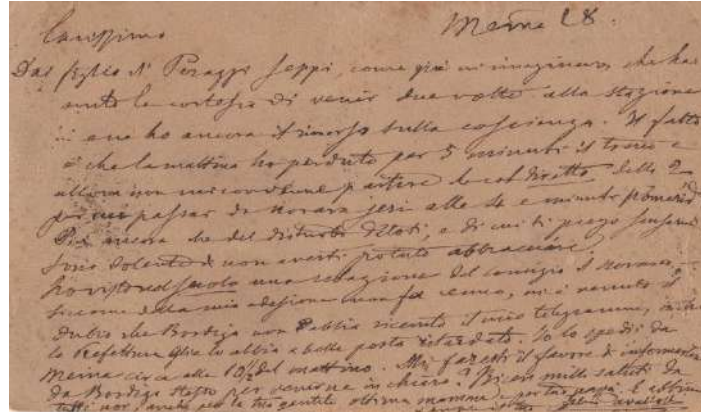 Meina 28.
Carissimo
Dal figlio di Peraggi seppi, come già m'immaginavo, che hai
avuto la cortesia di venir due volte alla stazione
ed ora ho ancora il rimorso sulla coscienza. Il fatto
è che la mattina ho perduto per 5 minuti il treno e
allora non mi convenne partire che col diretto delle 2
per cui passar da Novara jeri alle 4 e minuti pomerid.
Più ancora che del disturbo datoti, e di cui ti prego scusarmi
sono dolente di non averti potuto abbracciare.
Ho visto nel Secolo una relazione del consiglio di Novara,
siccome della mia adesione non fa cenno, mi è venuto il
dubbio che Bordiga non abbia ricevuto il mio telegramma,
la Prefettura glielo abbia a bella posta ritardato. Io lo spedii da
Meina circa alle 10½ del mattino. Mi faresti il favore di informarti
da Bordiga stesso per venirne in chiaro? Ricevi mille saluti da
tutti noi, anche per la tua gentile ottima mamma e